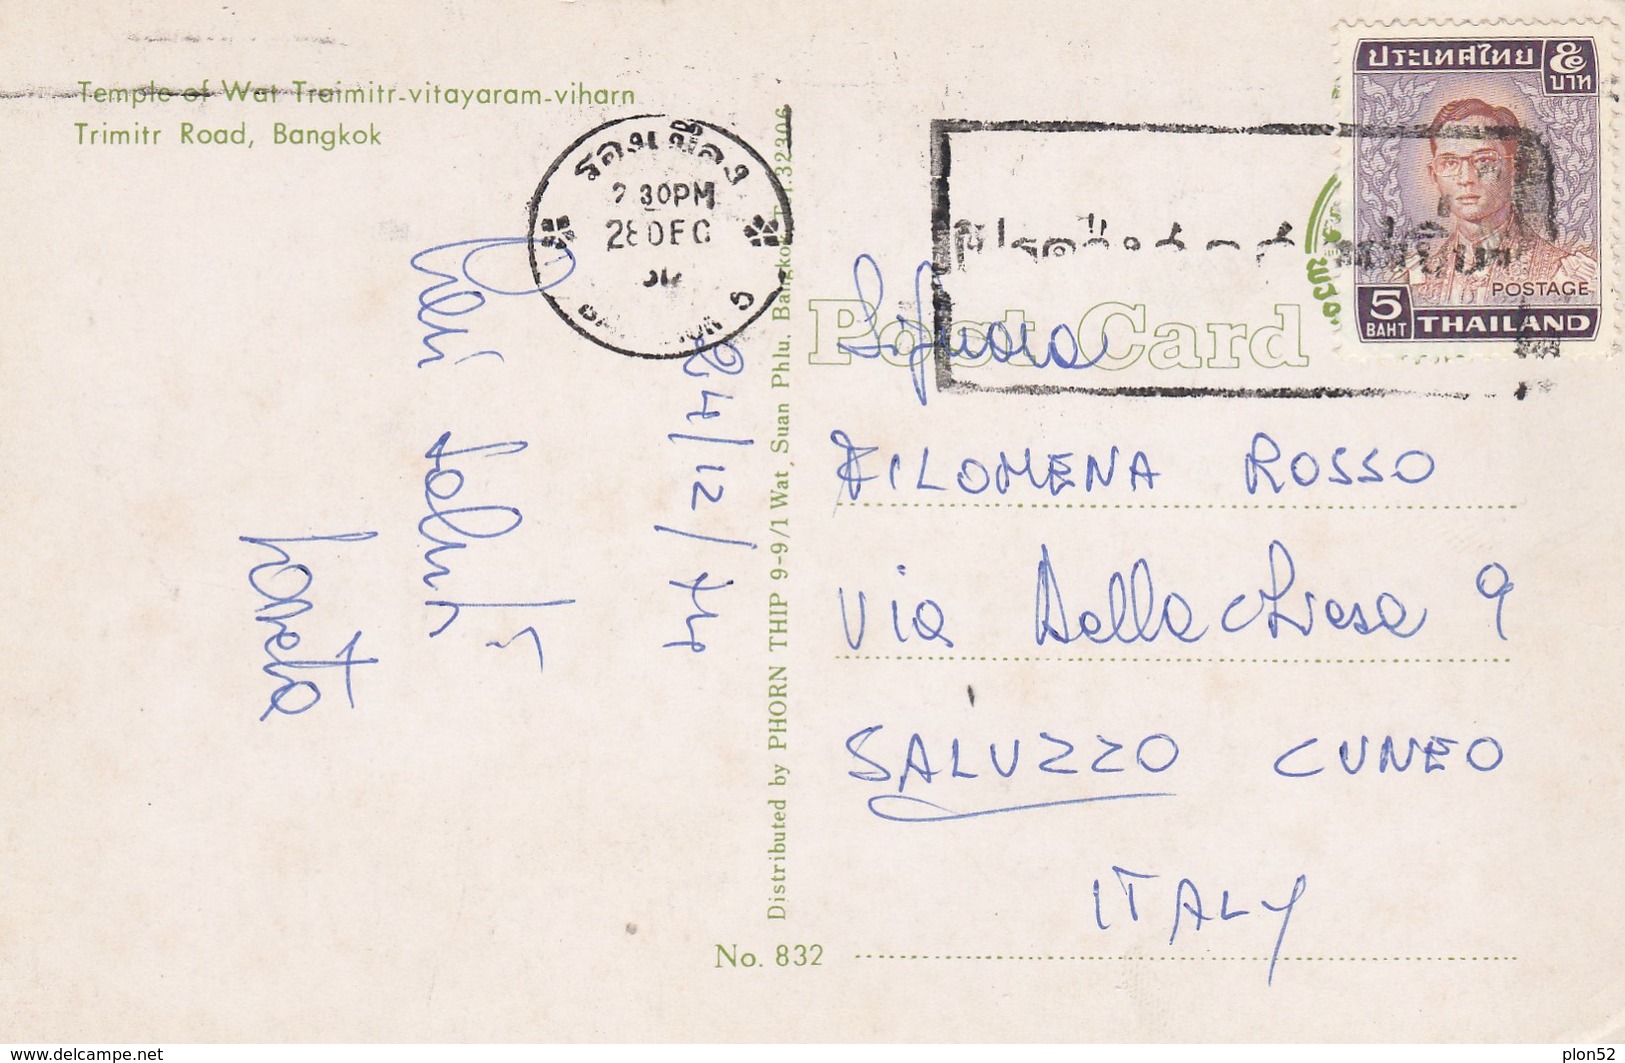 Temple of Wat Traimitr-vitayaram-viharn
Trimitr Road, Bangkok
รองเมือง
2 30PM
28 DEC
5
24/12/74
Cari saluti
Loreta
Distributed by PHORN THIP 9-9/1 Wat, Suan Phlu, Bangkok T.32306
No. 832
Post Card
ประเทศไทย ๕
บาท
POSTAGE
5
BAHT THAILAND
Signora
FILOMENA ROSSO
Via Della Chiesa 9
SALUZZO CUNEO
ITALY
www.delcampe.net
plon52